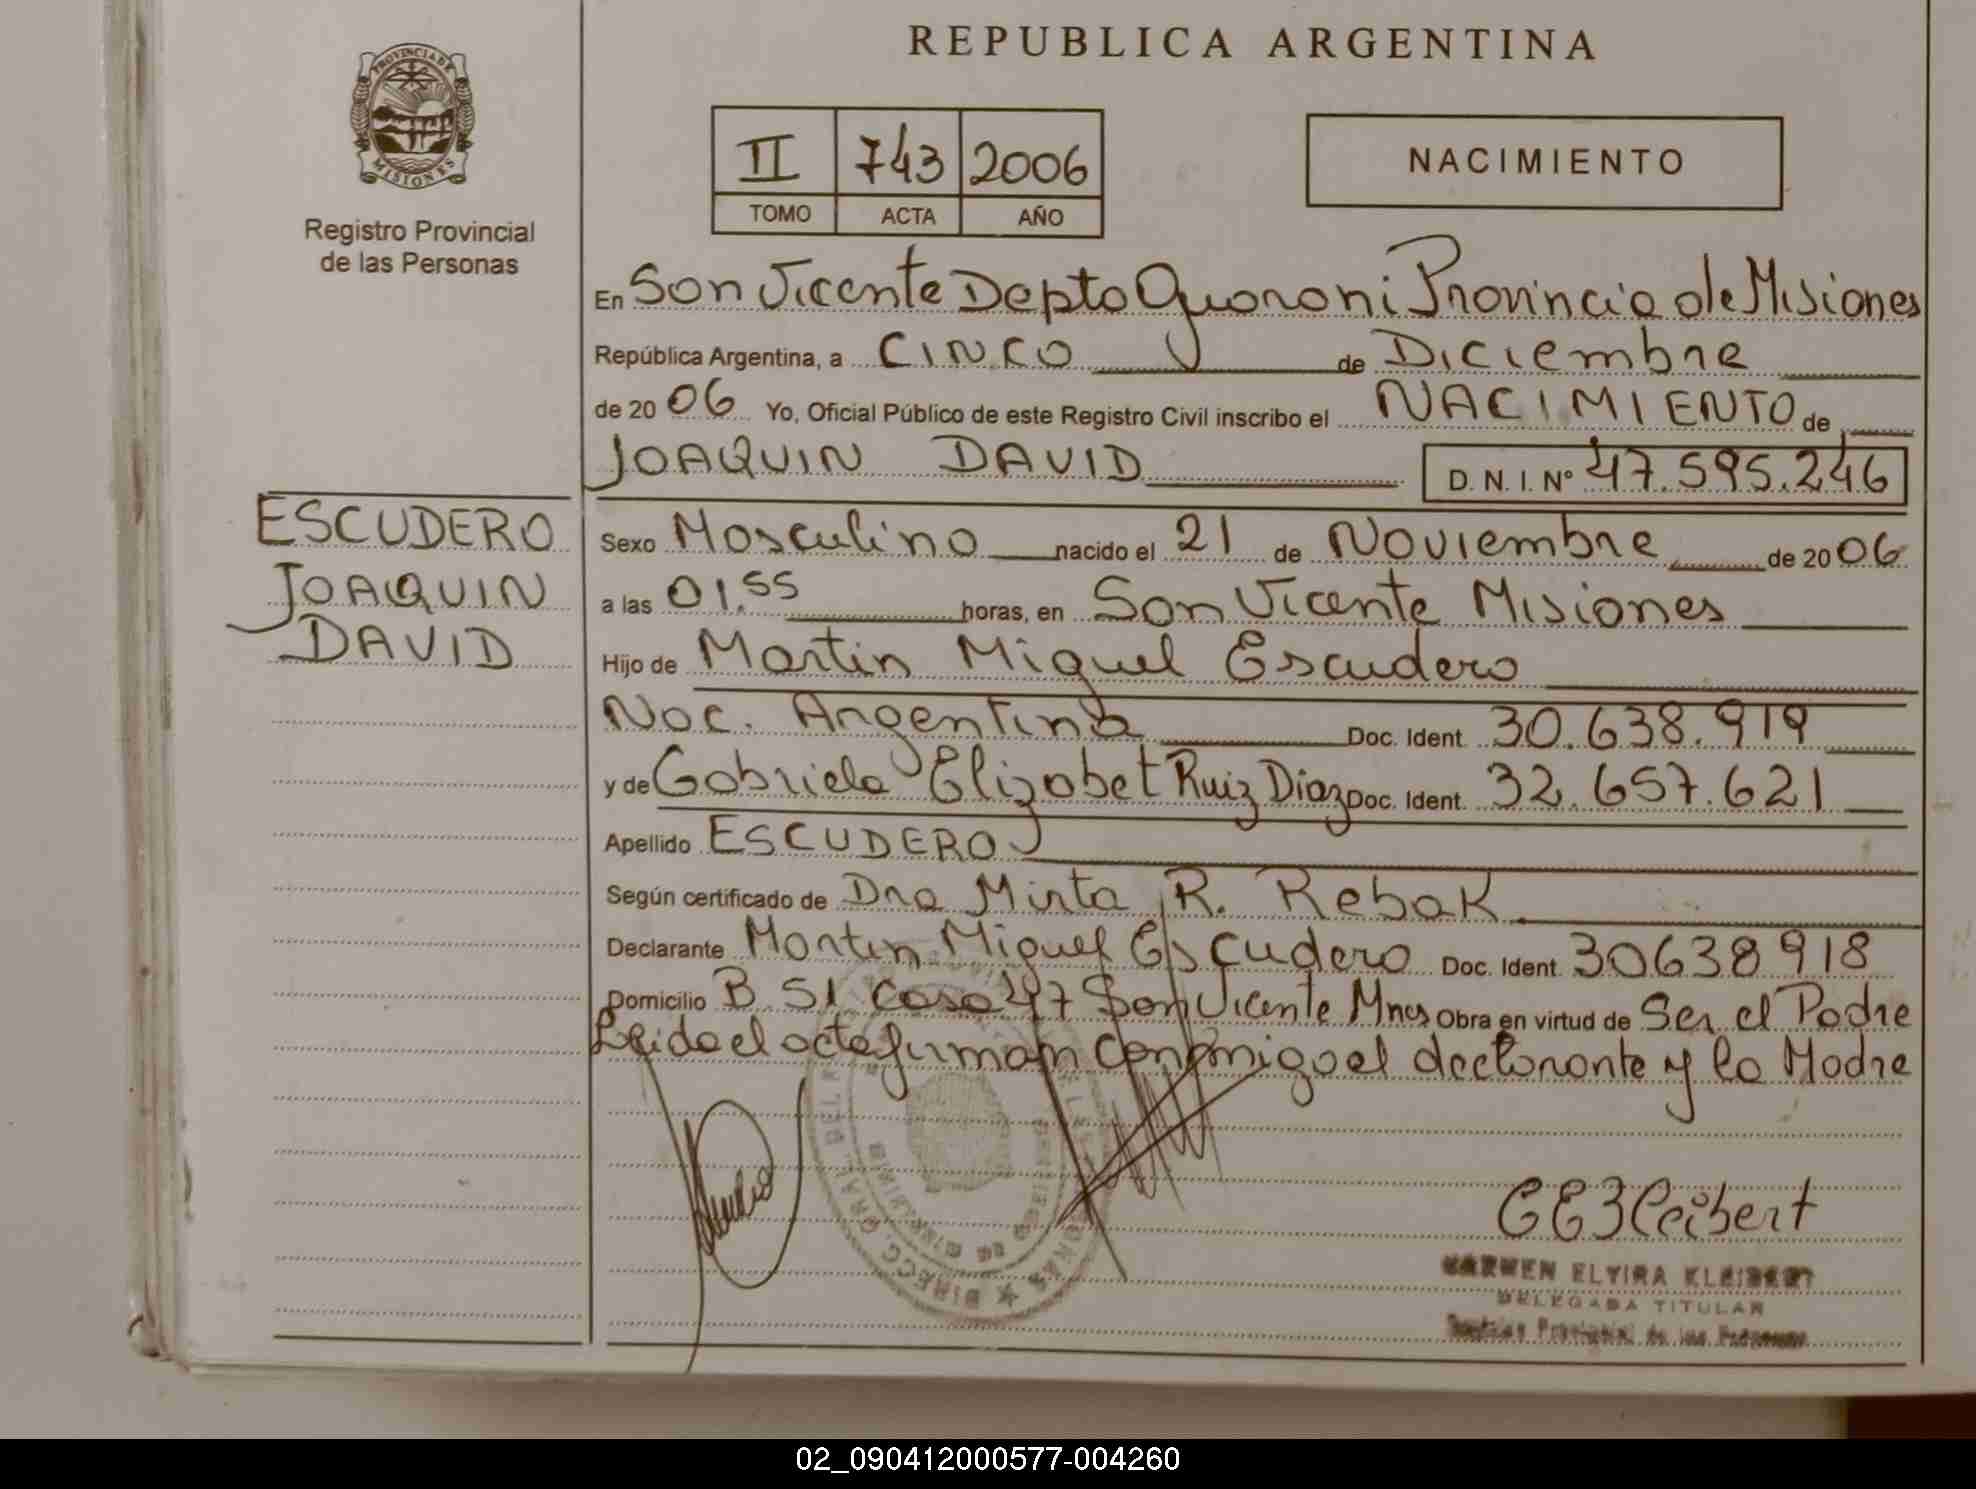 REPUBLICA ARGENTINA
PROVINCIA DE
MISIONES
Registro Provincial
de las Personas
II 743 2006
TOMO ACTA AÑO
NACIMIENTO
En San Vicente Depto Guarani Provincia de Misiones
República Argentina, a CINCO de Diciembre
de 2006 Yo, Oficial Público de este Registro Civil inscribo el NACIMIENTO de
JOAQUIN DAVID D. N. I. Nº 47.595.246
ESCUDERO
JOAQUIN
DAVID
Sexo Masculino nacido el 21 de Noviembre de 2006
a las 01.55 horas, en San Vicente Misiones
Hijo de Martin Miguel Escudero
Nac. Argentina Doc. Ident. 30.638.919
y de Gabriela Elizabet Ruiz Diaz Doc. Ident. 32.657.621
Apellido ESCUDERO
Según certificado de Dra Mirta R. Rebak
Declarante Martin Miguel Escudero Doc. Ident. 30638918
Domicilio B. 51 Casa 47 San Vicente Mnes Obra en virtud de Ser el Padre
Leida el acta firman conmigo el declarante y la Madre
CARMEN ELVIRA KLEIBERT
DELEGADA TITULAR
Provincial de las Personas
02_090412000577-004260